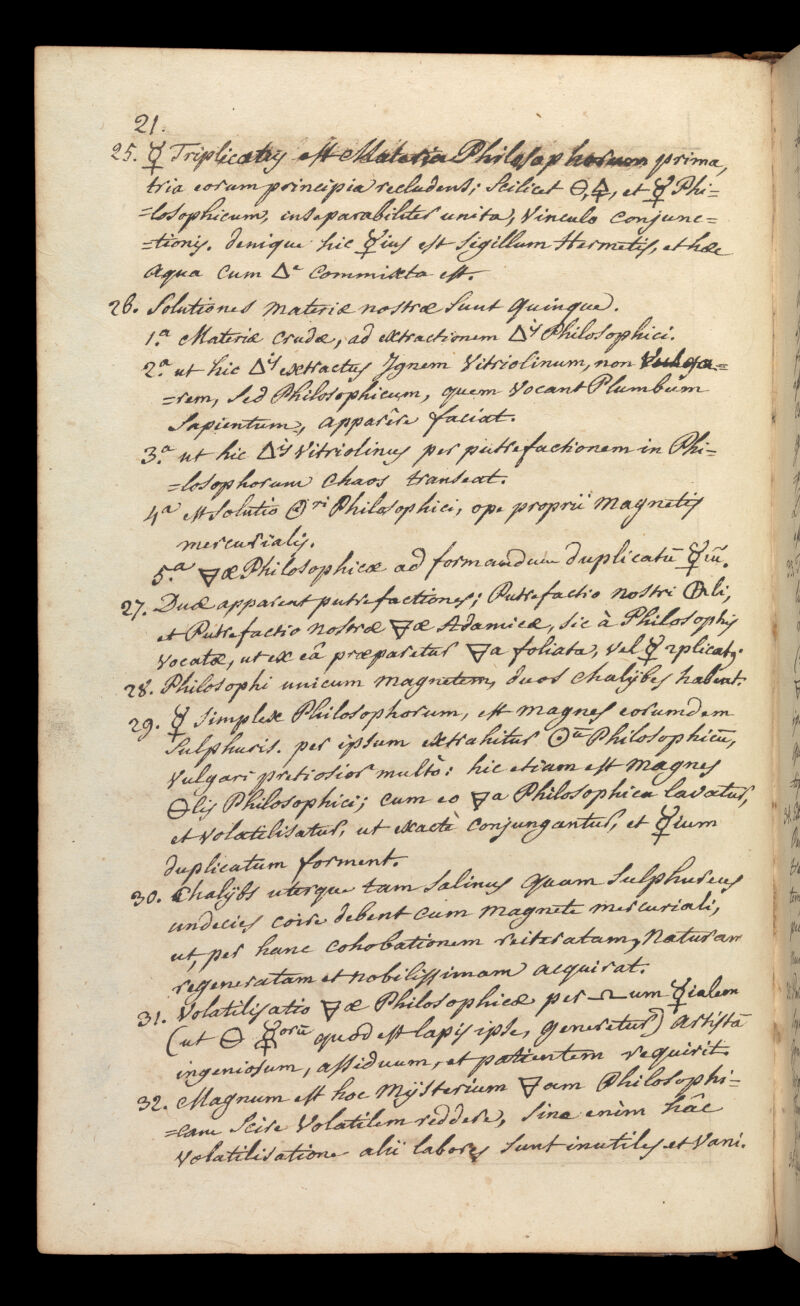 21.
25. ☿ Triplicatus est Materia Philosophorum prima,
tria eorum principia recludens; Scilicet 🜔, 🜍, et ☿ Phi=
=losophicum, inseparabiliter unita, Vinculo conjunc=
=tionis. denique hic ☿ius est Sigillum Hermetis, et hæc
aqua cum 🜂e commixta est.
26. Solutiones materiæ nostræ Sunt quinque.
1.a Materiæ crudæ, ad extractionem 🜂is Philosophici.
2.a ut hic 🜂is extractus Ignem Vitriolinum, non Vulga=
=rem, Sed Philosophicum, quem Vocant Plumbum
Sapientum, apparêre faciat.
3.a ut hic 🜂is Vitriolinus per putrefactionem in Phi=
=losophorum Chaos transeat.
4a est Solutio ☉ri Philosophici, ope proprii Magnetis
mercurialis.
5.a 🜃æ Philosophicæ ad formandum duplicatū ☿iū.
27. Duæ apparent putrefactiones; Putrefactio nostri 🜕li,
et Putrefactio nostræ 🜃æ Adamicæ, sic à Philosophis
Vocatæ, ut ex eâ præparetur 🜃a foliata, vel ☿ 2plicatus.
28. Philosophi unicum magnetem, duos Chalÿbes habent.
29. ☿ Simplex Philosophorum, est magnes eorumdem
Sulphuris. per ipsum extrahitur ☉m Philosophicū,
Vulgari pretiosior multò: hic etiam est magnes
🜔lis Philosophici; cum eo 🜃a Philosophica lavatur,
et Volatilisatur, ut exactè conjungantur, et ☿ium
duplicatum forment.
30. Chalÿbs uterque tam Salinus quam Sulphureus
undecies coire debent cum magnete mercuriali,
ut, per hanc cohobationem reiteratam, Naturam
regeneratam et nobilissimam acquirat.
31. Volatilisatio 🜃æ Philosophicæ per ♎um ☿ialem
(ut 🜔 ☿orū quod est lapis ipse, generetur) artistā
ingeniosum, assiduum, et patientem requirit.
32. Magnum est hoc Mÿsterium 🜃am Philosophi=
=cam Scire Volatilem reddere, Sine enim hâc
Volatilisatione alii labores Sunt inutiles et Vani.